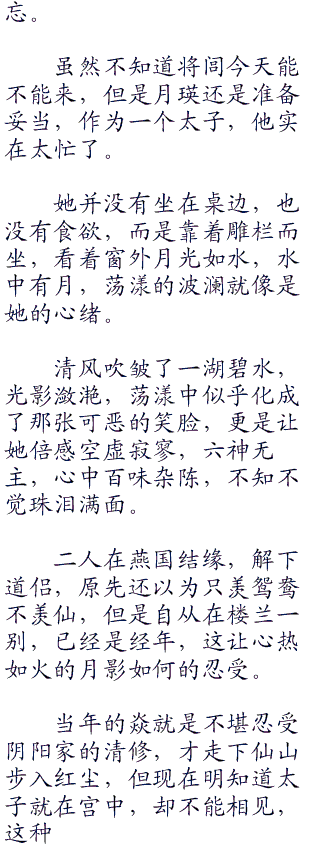 忘。
虽然不知道将闾今天能
不能来，但是月瑛还是准备
妥当，作为一个太子，他实
在太忙了。
她并没有坐在桌边，也
没有食欲，而是靠着雕栏而
坐，看着窗外月光如水，水
中有月，荡漾的波澜就像是
她的心绪。
清风吹皱了一湖碧水，
光影潋滟，荡漾中似乎化成
了那张可恶的笑脸，更是让
她倍感空虚寂寥，六神无
主，心中百味杂陈，不知不
觉珠泪满面。
二人在燕国结缘，解下
道侣，原先还以为只羡鸳鸯
不羡仙，但是自从在楼兰一
别，已经是经年，这让心热
如火的月影如何的忍受。
当年的焱就是不堪忍受
阴阳家的清修，才走下仙山
步入红尘，但现在明知道太
子就在宫中，却不能相见，
这种